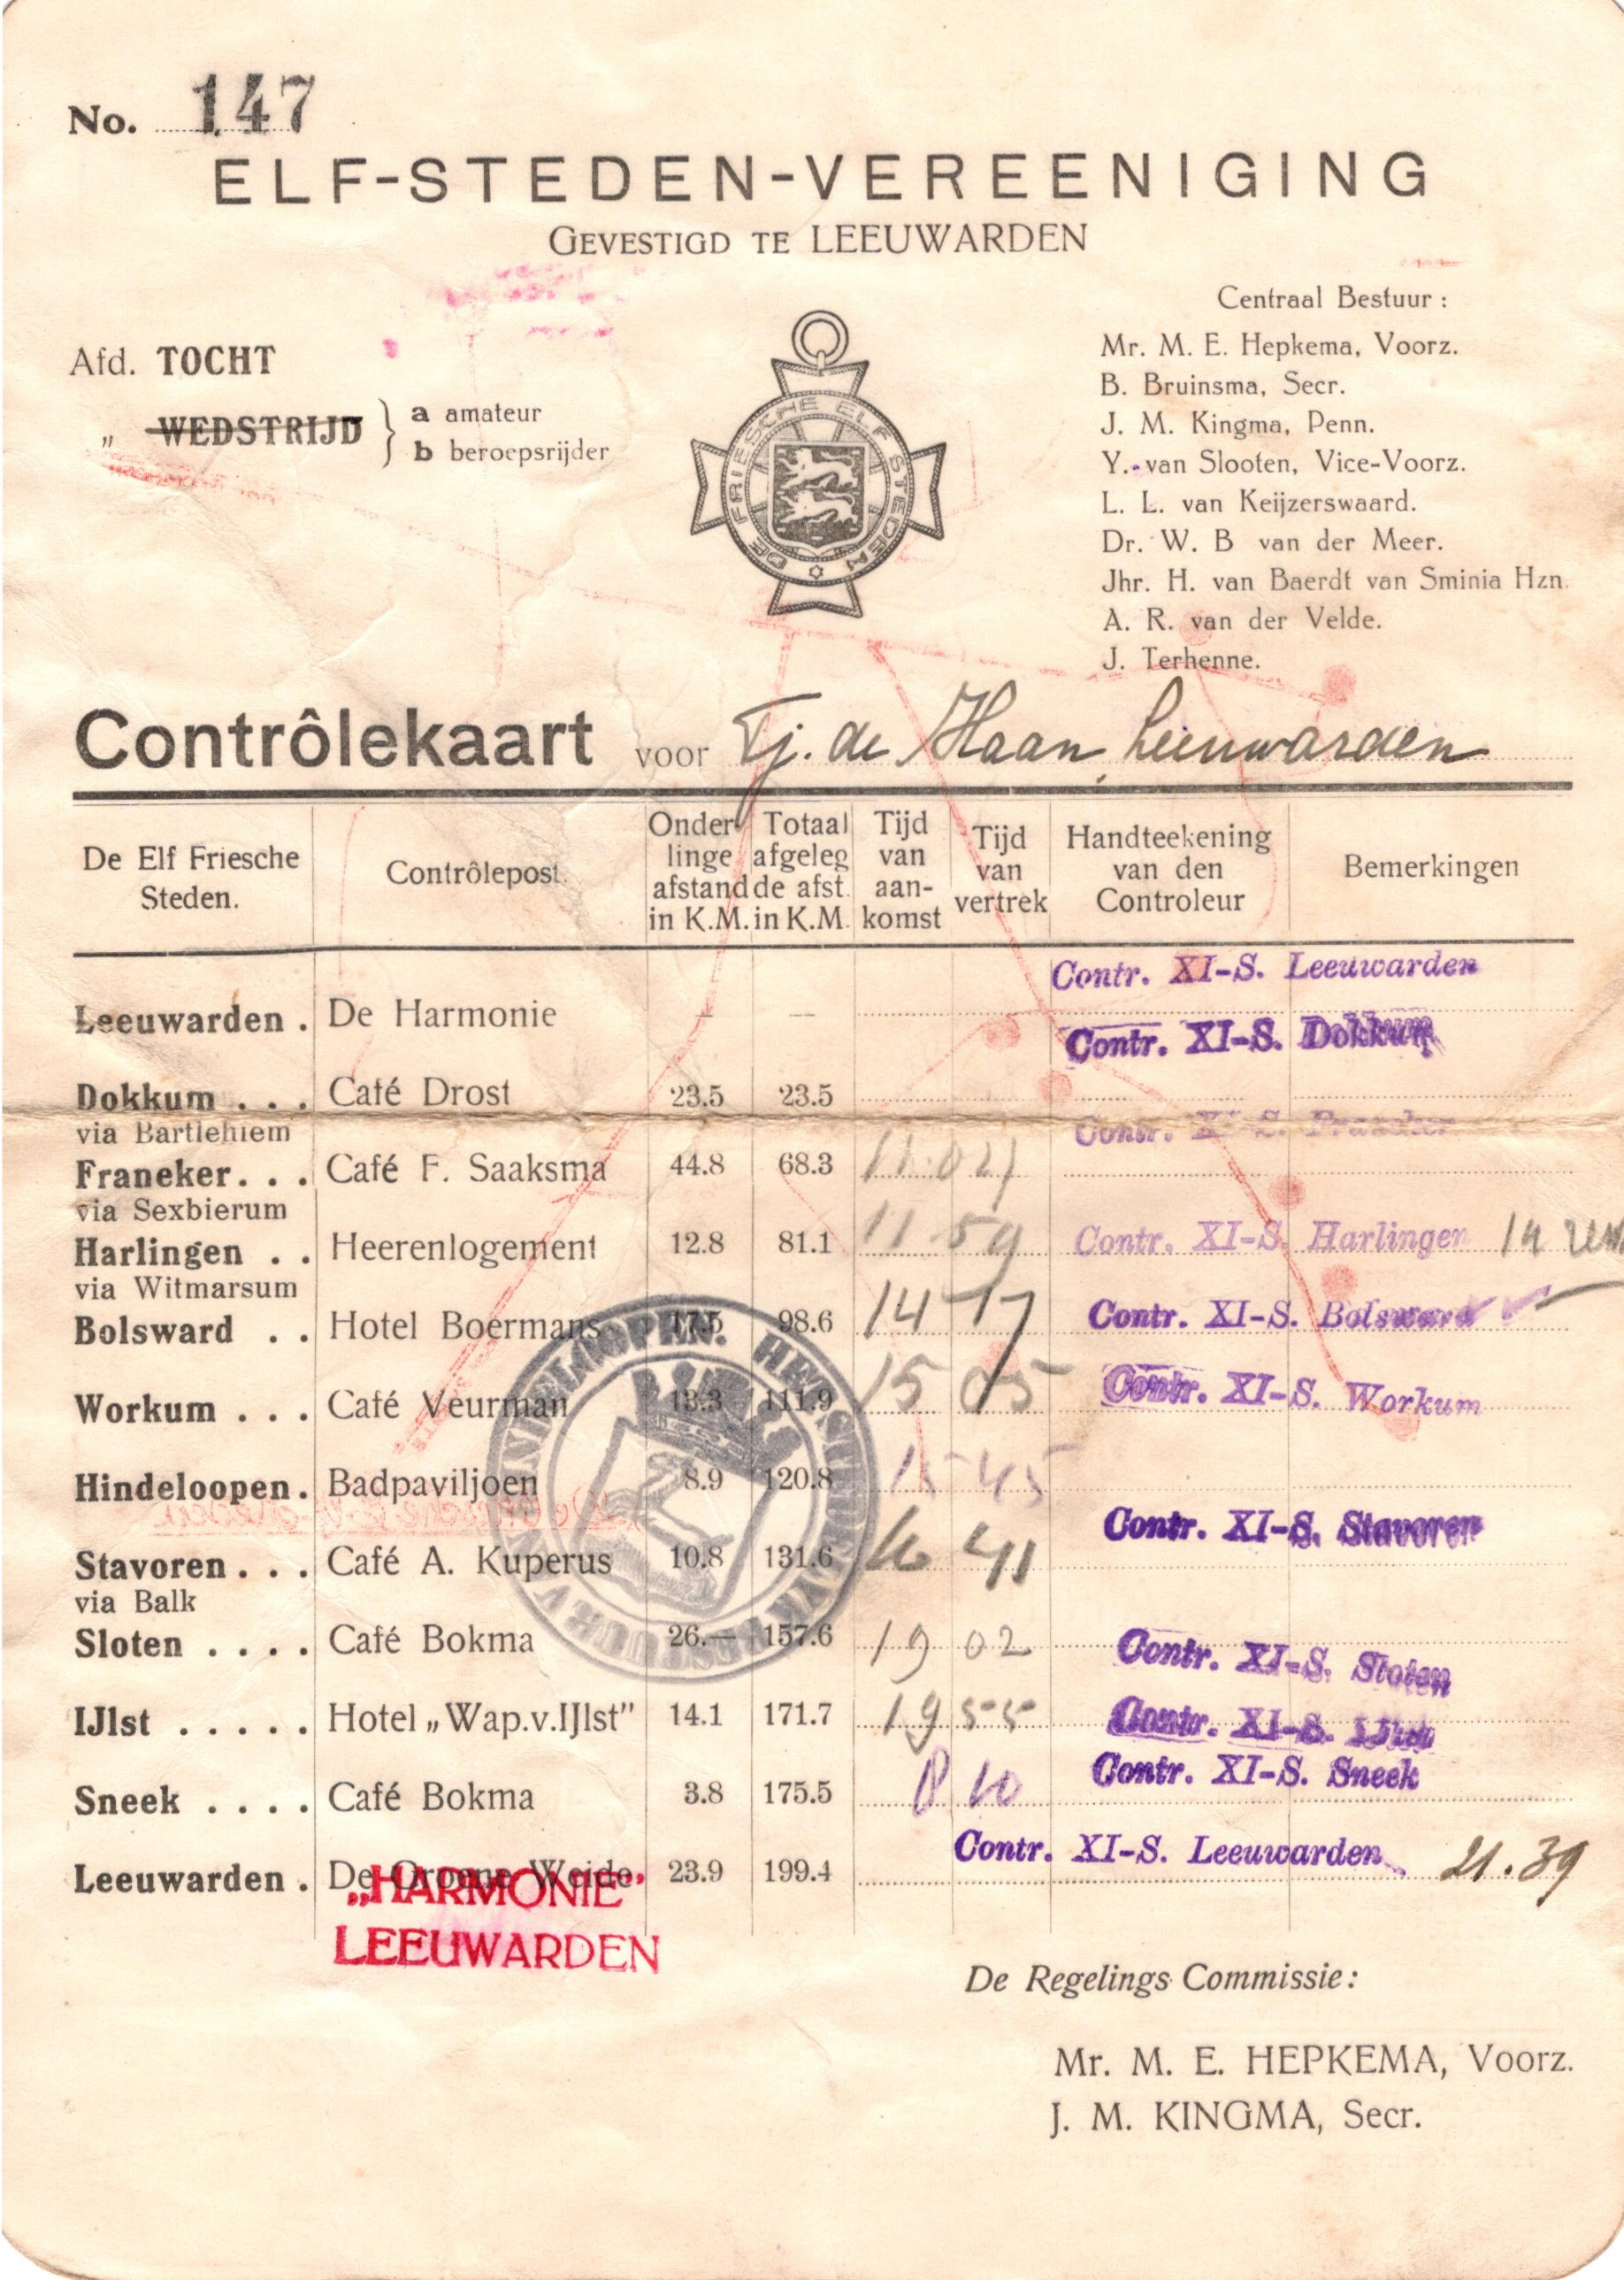 No. 147
ELF-STEDEN-VEREENIGING
GEVESTIGD TE LEEUWARDEN
Centraal Bestuur :
Mr. M. E. Hepkema, Voorz.
B. Bruinsma, Secr.
J. M. Kingma, Penn.
Y. van Slooten, Vice-Voorz.
L. L. van Keijzerswaard.
Dr. W. B van der Meer.
Jhr. H. van Baerdt van Sminia Hzn.
A. R. van der Velde.
J. Terhenne.
Afd. TOCHT
„ WEDSTRIJD } a amateur
b beroepsrijder
DE FRIESCHE ELF STEDEN
Contrôlekaart voor Tj. de Haan, Leeuwarden
De Elf Friesche Steden. Contrôlepost. Onderlinge afstand in K.M. Totaal afgelegde afst. in K.M. Tijd van aankomst Tijd van vertrek Handteekening van den Controleur Bemerkingen
Contr. XI-S. Leeuwarden
Leeuwarden . De Harmonie – –
Contr. XI-S. Dokkum
Dokkum . . . Café Drost 23.5 23.5
via Bartlehiem
Contr. XI-S. Franeker
Franeker. . . Café F. Saaksma 44.8 68.3 11.
via Sexbierum
Harlingen . . Heerenlogement 12.8 81.1 11 59 Contr. XI-S. Harlingen 14
via Witmarsum
Bolsward . . Hotel Boermans 17.5 98.6 14 17 Contr. XI-S. Bolsward
Workum . . . Café Veurman 13.3 111.9 15 05 Contr. XI-S. Workum
Hindeloopen . Badpaviljoen 8.9 120.8 15 45
HINDELOOPEN. HET
Contr. XI-S. Stavoren
Stavoren . . . Café A. Kuperus 10.8 131.6 16 41
via Balk
Sloten . . . . Café Bokma 26.— 157.6 19 02 Contr. XI-S. Sloten
IJlst . . . . . Hotel „Wap.v.IJlst” 14.1 171.7 19 55 Contr. XI-S. IJlst
Contr. XI-S. Sneek
Sneek . . . . Café Bokma 3.8 175.5 8 10
Contr. XI-S. Leeuwarden 21.39
Leeuwarden . De Groene Weide 23.9 199.4
„HARMONIE”
LEEUWARDEN
De Regelings Commissie :
Mr. M. E. HEPKEMA, Voorz.
J. M. KINGMA, Secr.